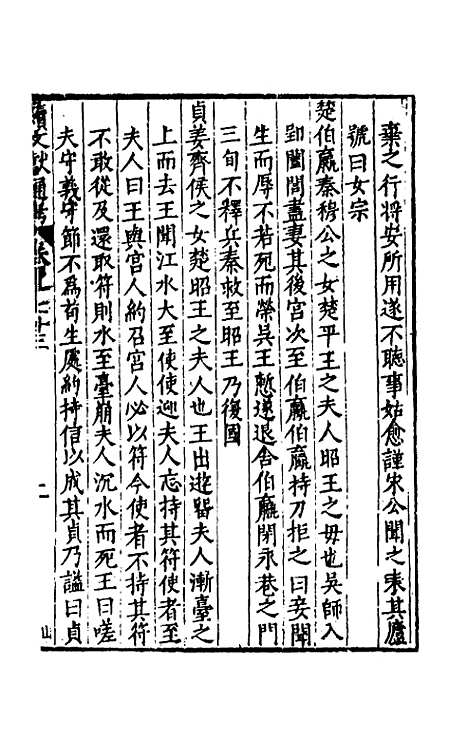 棄之行將安所用遂不聽事姑愈謹宋公聞之表其廬
號曰女宗
楚伯嬴秦穆公之女楚平王之夫人昭王之母也吳師入
郢闔閭盡妻其後宮次至伯嬴伯嬴持刀拒之曰妾聞
生而辱不若死而榮吳王慙遂退舍伯嬴閉永巷之門
三旬不釋兵秦救至昭王乃復國
貞姜齊侯之女楚昭王之夫人也王出遊留夫人漸臺之
上而去王聞江水大至使使迎夫人忘持其符使者至
夫人曰王與宮人約召宮人必以符今使者不持其符
不敢從及還取符則水至臺崩夫人沉水而死王曰嗟
夫守義守節不爲苟生處約持信以成其貞乃謚曰貞
續文獻通考
二
山